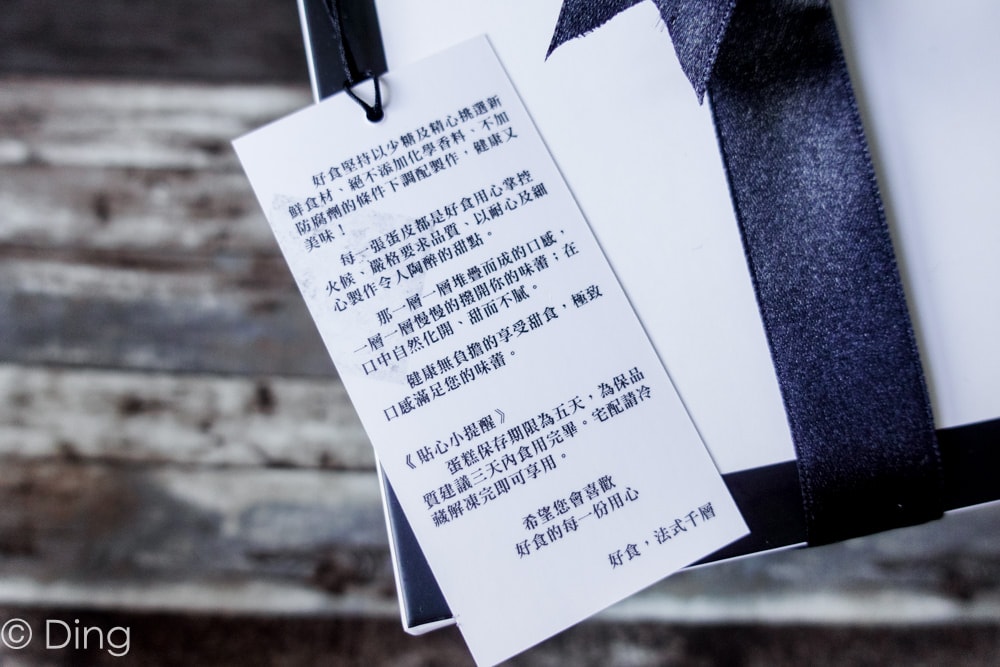 好食堅持以少糖及精心挑選新
鮮食材、絕不添加化學香料、不加
防腐劑的條件下調配製作，健康又
美味！
每一張蛋皮都是好食用心掌控
火候、嚴格要求品質、以耐心及細
心製作令人陶醉的甜點。
那一層一層堆疊而成的口感，
一層一層慢慢的撥開你的味蕾；在
口中自然化開、甜而不膩。
健康無負擔的享受甜食，極致
口感滿足您的味蕾。
《貼心小提醒》
蛋糕保存期限為五天，為保品
質建議三天內食用完畢。宅配請冷
藏解凍完即可享用。
希望您會喜歡
好食的每一份用心
好食，法式千層
© Ding